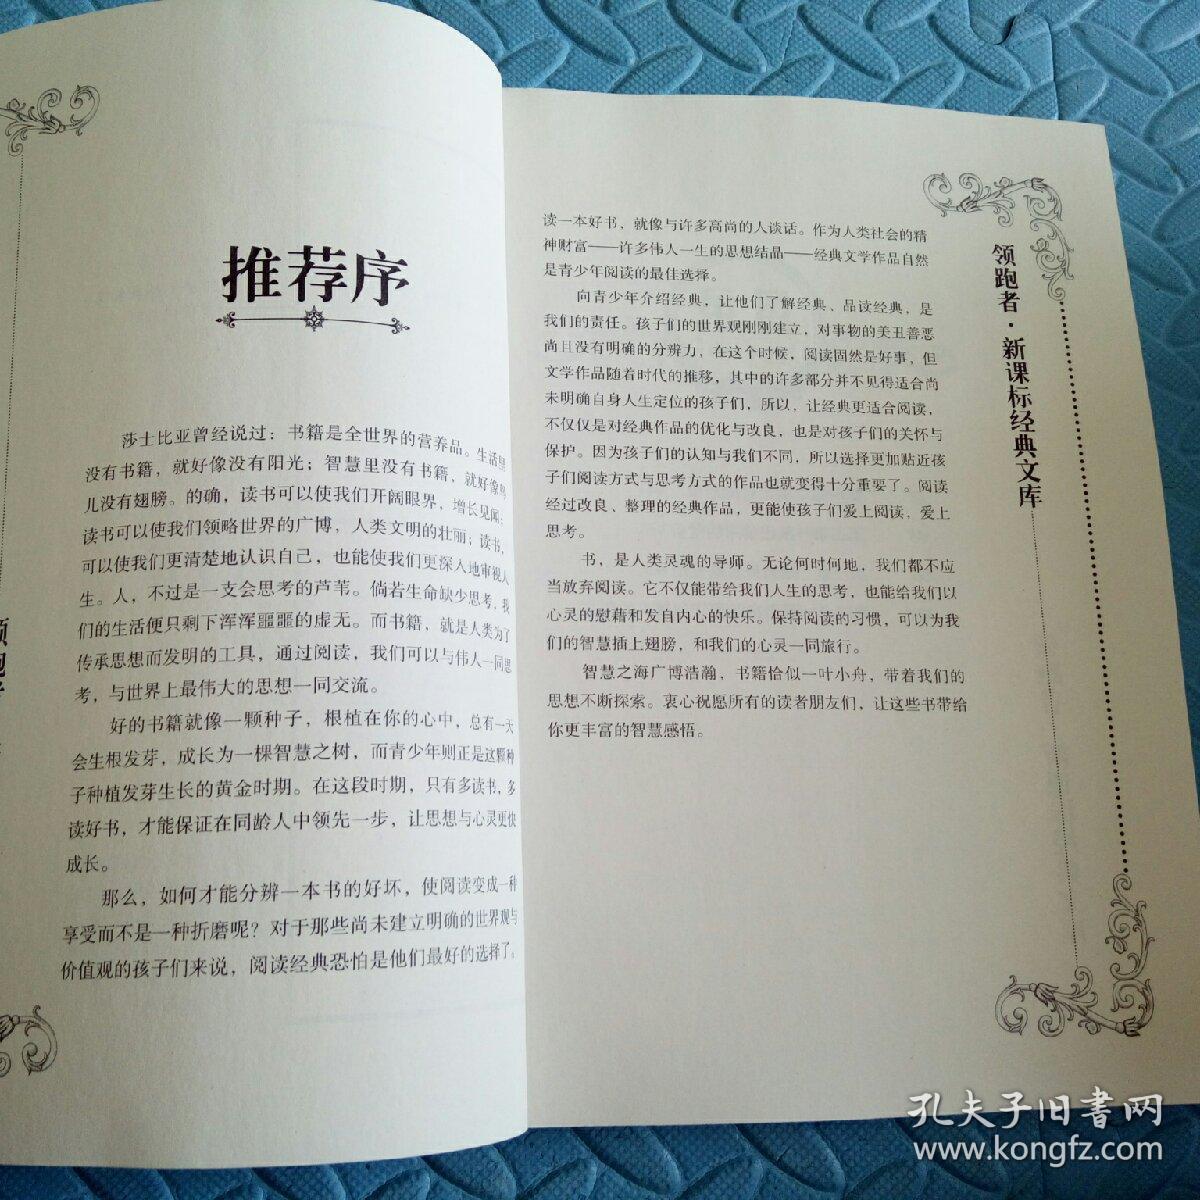 推荐序
莎士比亚曾经说过：书籍是全世界的营养品。生活里
没有书籍，就好像没有阳光；智慧里没有书籍，就好像鸟
儿没有翅膀。的确，读书可以使我们开阔眼界，增长见闻；
读书可以使我们领略世界的广博，人类文明的壮丽；读书，
可以使我们更清楚地认识自己，也能使我们更深入地审视人
生。人，不过是一支会思考的芦苇。倘若生命缺少思考，我
们的生活便只剩下浑浑噩噩的虚无。而书籍，就是人类为了
传承思想而发明的工具，通过阅读，我们可以与伟人一同思
考，与世界上最伟大的思想一同交流。
好的书籍就像一颗种子，根植在你的心中，总有一天
会生根发芽，成长为一棵智慧之树，而青少年则正是这颗种
子种植发芽生长的黄金时期。在这段时期，只有多读书，多
读好书，才能保证在同龄人中领先一步，让思想与心灵更快
成长。
那么，如何才能分辨一本书的好坏，使阅读变成一种
享受而不是一种折磨呢？对于那些尚未建立明确的世界观与
价值观的孩子们来说，阅读经典恐怕是他们最好的选择了。
读一本好书，就像与许多高尚的人谈话。作为人类社会的精
神财富——许多伟人一生的思想结晶——经典文学作品自然
是青少年阅读的最佳选择。
向青少年介绍经典，让他们了解经典、品读经典，是
我们的责任。孩子们的世界观刚刚建立，对事物的美丑善恶
尚且没有明确的分辨力，在这个时候，阅读固然是好事，但
文学作品随着时代的推移，其中的许多部分并不见得适合尚
未明确自身人生定位的孩子们，所以，让经典更适合阅读，
不仅仅是对经典作品的优化与改良，也是对孩子们的关怀与
保护。因为孩子们的认知与我们不同，所以选择更加贴近孩
子们阅读方式与思考方式的作品也就变得十分重要了。阅读
经过改良、整理的经典作品，更能使孩子们爱上阅读，爱上
思考。
书，是人类灵魂的导师。无论何时何地，我们都不应
当放弃阅读。它不仅能带给我们人生的思考，也能给我们以
心灵的慰藉和发自内心的快乐。保持阅读的习惯，可以为我
们的智慧插上翅膀，和我们的心灵一同旅行。
智慧之海广博浩瀚，书籍恰似一叶小舟，带着我们的
思想不断探索。衷心祝愿所有的读者朋友们，让这些书带给
你更丰富的智慧感悟。
领跑者·新课标经典文库
孔夫子旧书网
www.kongfz.com